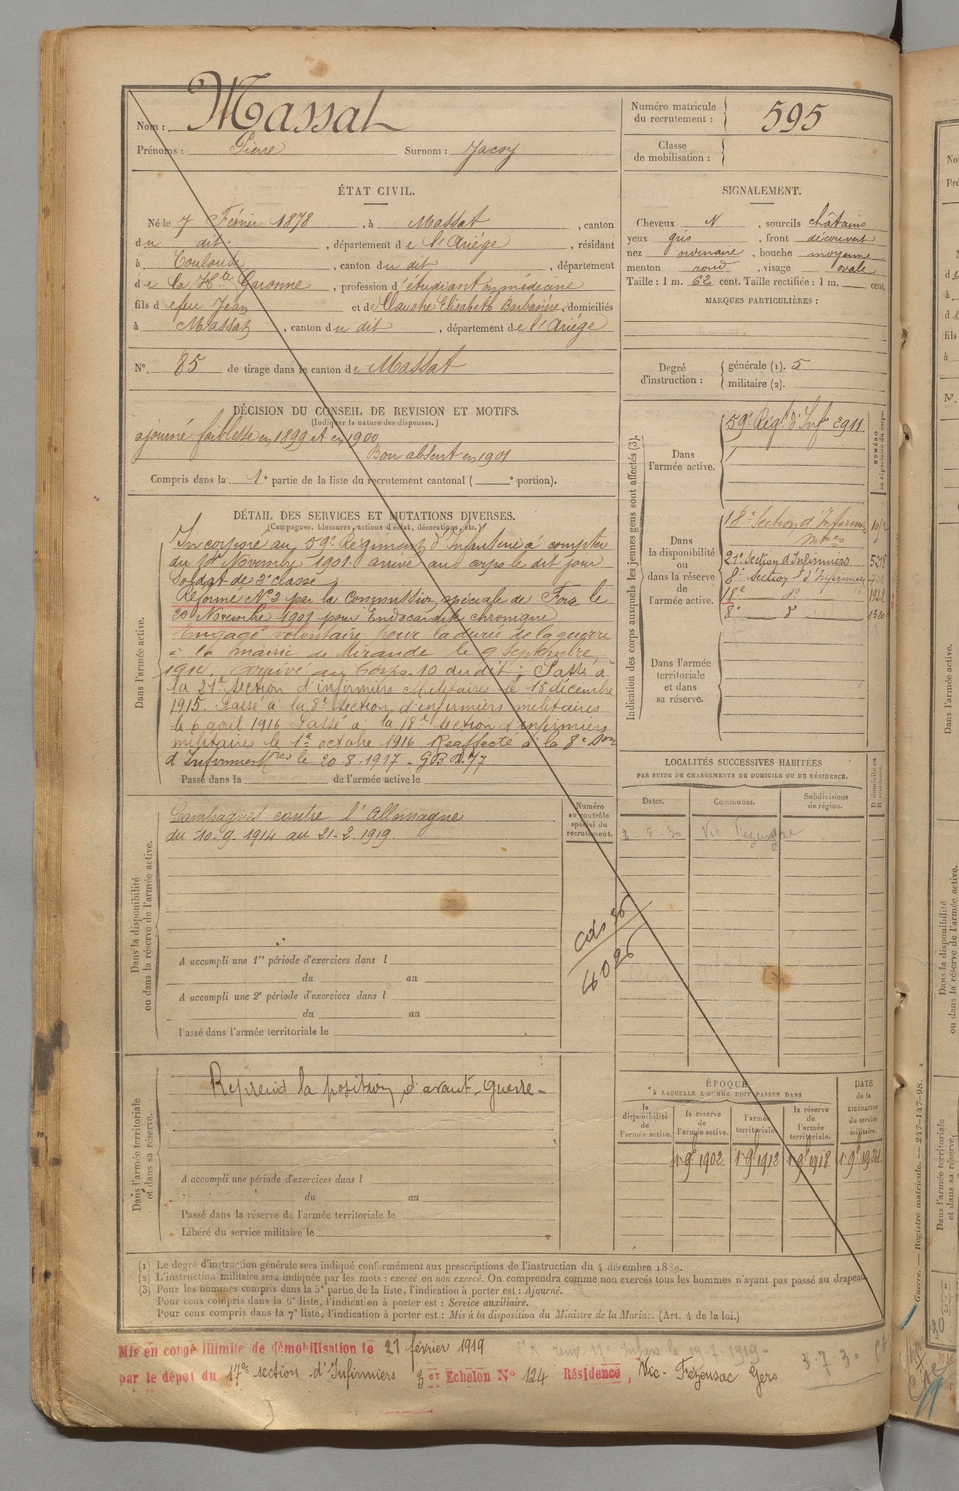 Nom : Massat
Prénoms : Pierre Surnom : Jacoy
Numéro matricule du recrutement : 595
Classe de mobilisation :
ÉTAT CIVIL.
Né le 7 Février 1878, à Massat, canton
du dit, département de l'Ariège, résidant
à Toulouse, canton du dit, département
de la Hte Garonne, profession d'étudiant en médecine
fils de feu Jean et de Claustre Elisabeth Barbanère, domiciliés
à Massat, canton du dit, département de l'Ariège
No. 85 de tirage dans le canton de Massat
SIGNALEMENT.
Cheveux N, sourcils châtains
yeux gris, front découvert
nez ordinaire, bouche moyenne
menton rond, visage ovale
Taille : 1 m. 62 cent. Taille rectifiée : 1 m. cent.
MARQUES PARTICULIÈRES :
Degré d'instruction :
générale (1). 5
militaire (2).
DÉCISION DU CONSEIL DE REVISION ET MOTIFS.
(Indiquer la nature des dispenses.)
ajourné faiblesse en 1899 et en 1900
Bon absent en 1901
Compris dans la 1e partie de la liste du recrutement cantonal ( e portion).
DÉTAIL DES SERVICES ET MUTATIONS DIVERSES.
(Campagnes, blessures, actions d'éclat, décorations, etc.)
Dans l'armée active.
Incorporé au 59e Régiment d'Infanterie à compter
du Novembre 1901. arrivé au corps le dit jour
Soldat de 2e classe
Réformé No 2 par la Commission spéciale de Foix le
Novembre 1901 pour Endocardite chronique
Engagé volontaire pour la durée de la guerre
à la mairie de Mirande le 9 Septembre
1914, arrivé au Corps 10 du dit ; Passé à
la 21e section d'infirmiers Militaires le 15 décembre
1915. Passé à la 8e section d'infirmiers militaires
le 6 avril 1916 Passé à la 18e section d'infirmiers
militaires le 1e octobre 1916 Réaffecté à la 8e Son
d'Infirmiers Mres le 20-8-1917 -
Passé dans la de l'armée active le
Indication des corps auxquels les jeunes gens sont affectés (3).
Dans l'armée active.
59e Régt d'Infie 2911
NUMÉRO au répertoire du corps.
Dans la disponibilité ou dans la réserve de l'armée active.
18e Section d'Infirmiers
mres
21e Section d'Infirmiers 5218
8e section d'Infirmiers
18e do
8e do
Dans l'armée territoriale et dans sa réserve.
LOCALITÉS SUCCESSIVES HABITÉES
PAR SUITE DE CHANGEMENTS DE DOMICILE OU DE RÉSIDENCE.
Dates. Communes. Subdivisions de région.
D domicile ou R résidence.
Vic Fezensac
Dans la disponibilité ou dans la réserve de l'armée active.
Numéro au contrôle spécial du recrutement.
Campagnes contre l'Allemagne
du 10.9.1914 au 21-2-1919
A accompli une 1re période d'exercices dans l
du au
A accompli une 2e période d'exercices dans l
du au
Passé dans l'armée territoriale le
Dans l'armée territoriale et dans sa réserve.
Reprend la position d'avant-guerre -
A accompli une période d'exercices dans l
du au
Passé dans la réserve de l'armée territoriale le
Libéré du service militaire le
ÉPOQUE
A LAQUELLE L'HOMME DOIT PASSER DANS
DATE de la LIBÉRATION du service militaire.
la disponibilité de l'armée active. la réserve de l'armée active. l'armée territoriale. la réserve de l'armée territoriale.
1 9bre 1902 1 9bre 1912 1 9bre 1918 1 9bre 1924
(1) Le degré d'instruction générale sera indiqué conformément aux prescriptions de l'Instruction du 4 décembre 1889.
(2) L'instruction militaire sera indiquée par les mots : exercé ou non exercé. On comprendra comme non exercés tous les hommes n'ayant pas passé au drapeau.
(3) Pour les hommes compris dans la 5e partie de la liste, l'indication à porter est : Ajourné.
Pour ceux compris dans la 6e liste, l'indication à porter est : Service auxiliaire.
Pour ceux compris dans la 7e liste, l'indication à porter est : Mis à la disposition du Ministre de la Marine. (Art. 4 de la loi.)
Mis en congé illimité de démobilisation le 21 février 1919
par le dépôt du 17e section d'Infirmiers 3e Echelon No 124 Résidence, Vic-Fezensac Gers
Guerre. — Registre matricule. — 247-147-98.